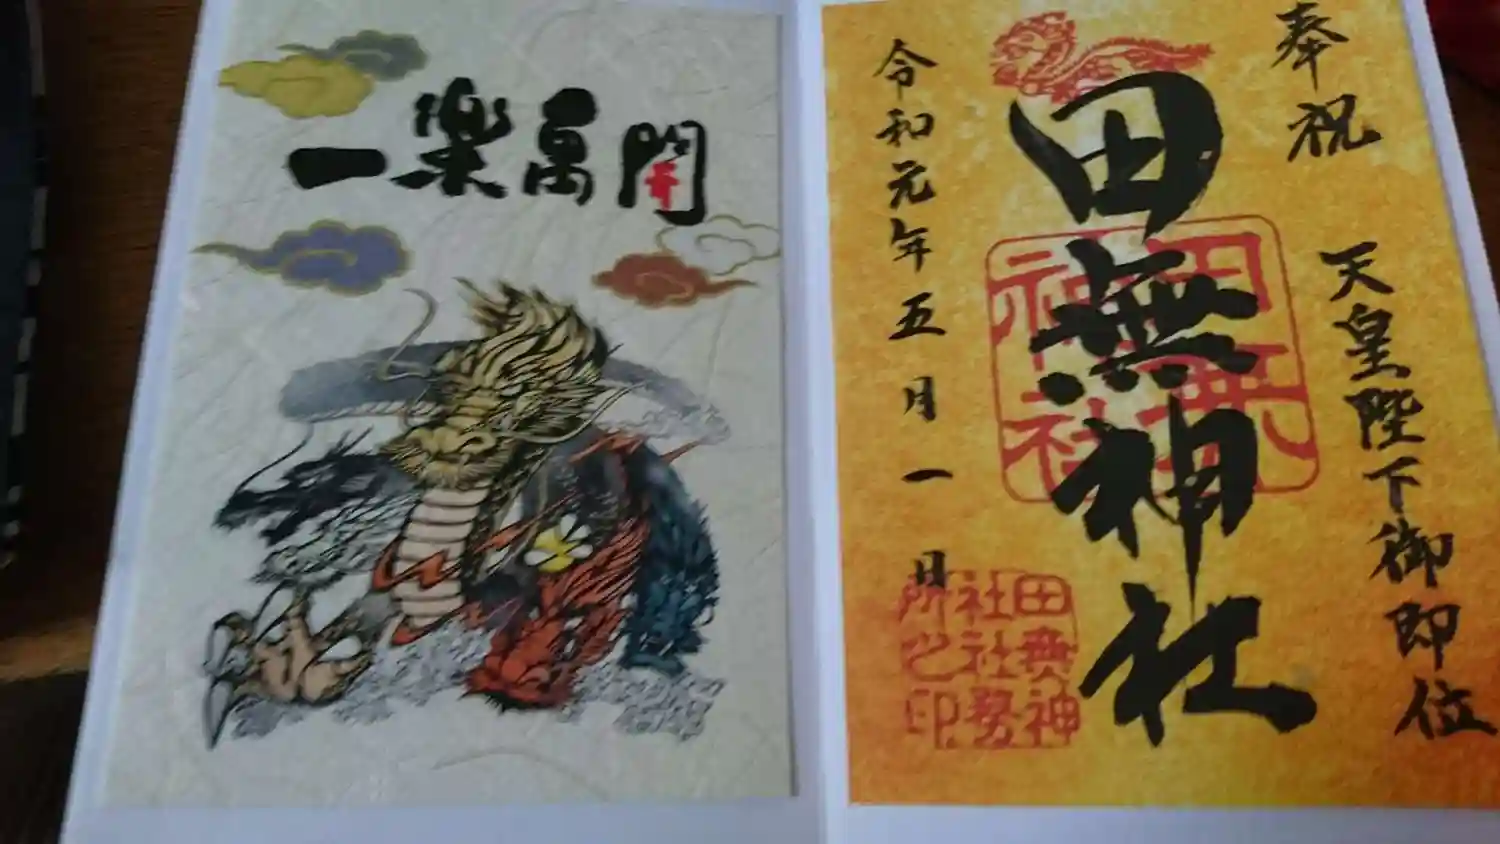 一樂萬開
奉祝
天皇陛下御即位
田無神社
令和元年五月一日
田無神社
田無神
社社務
所之印